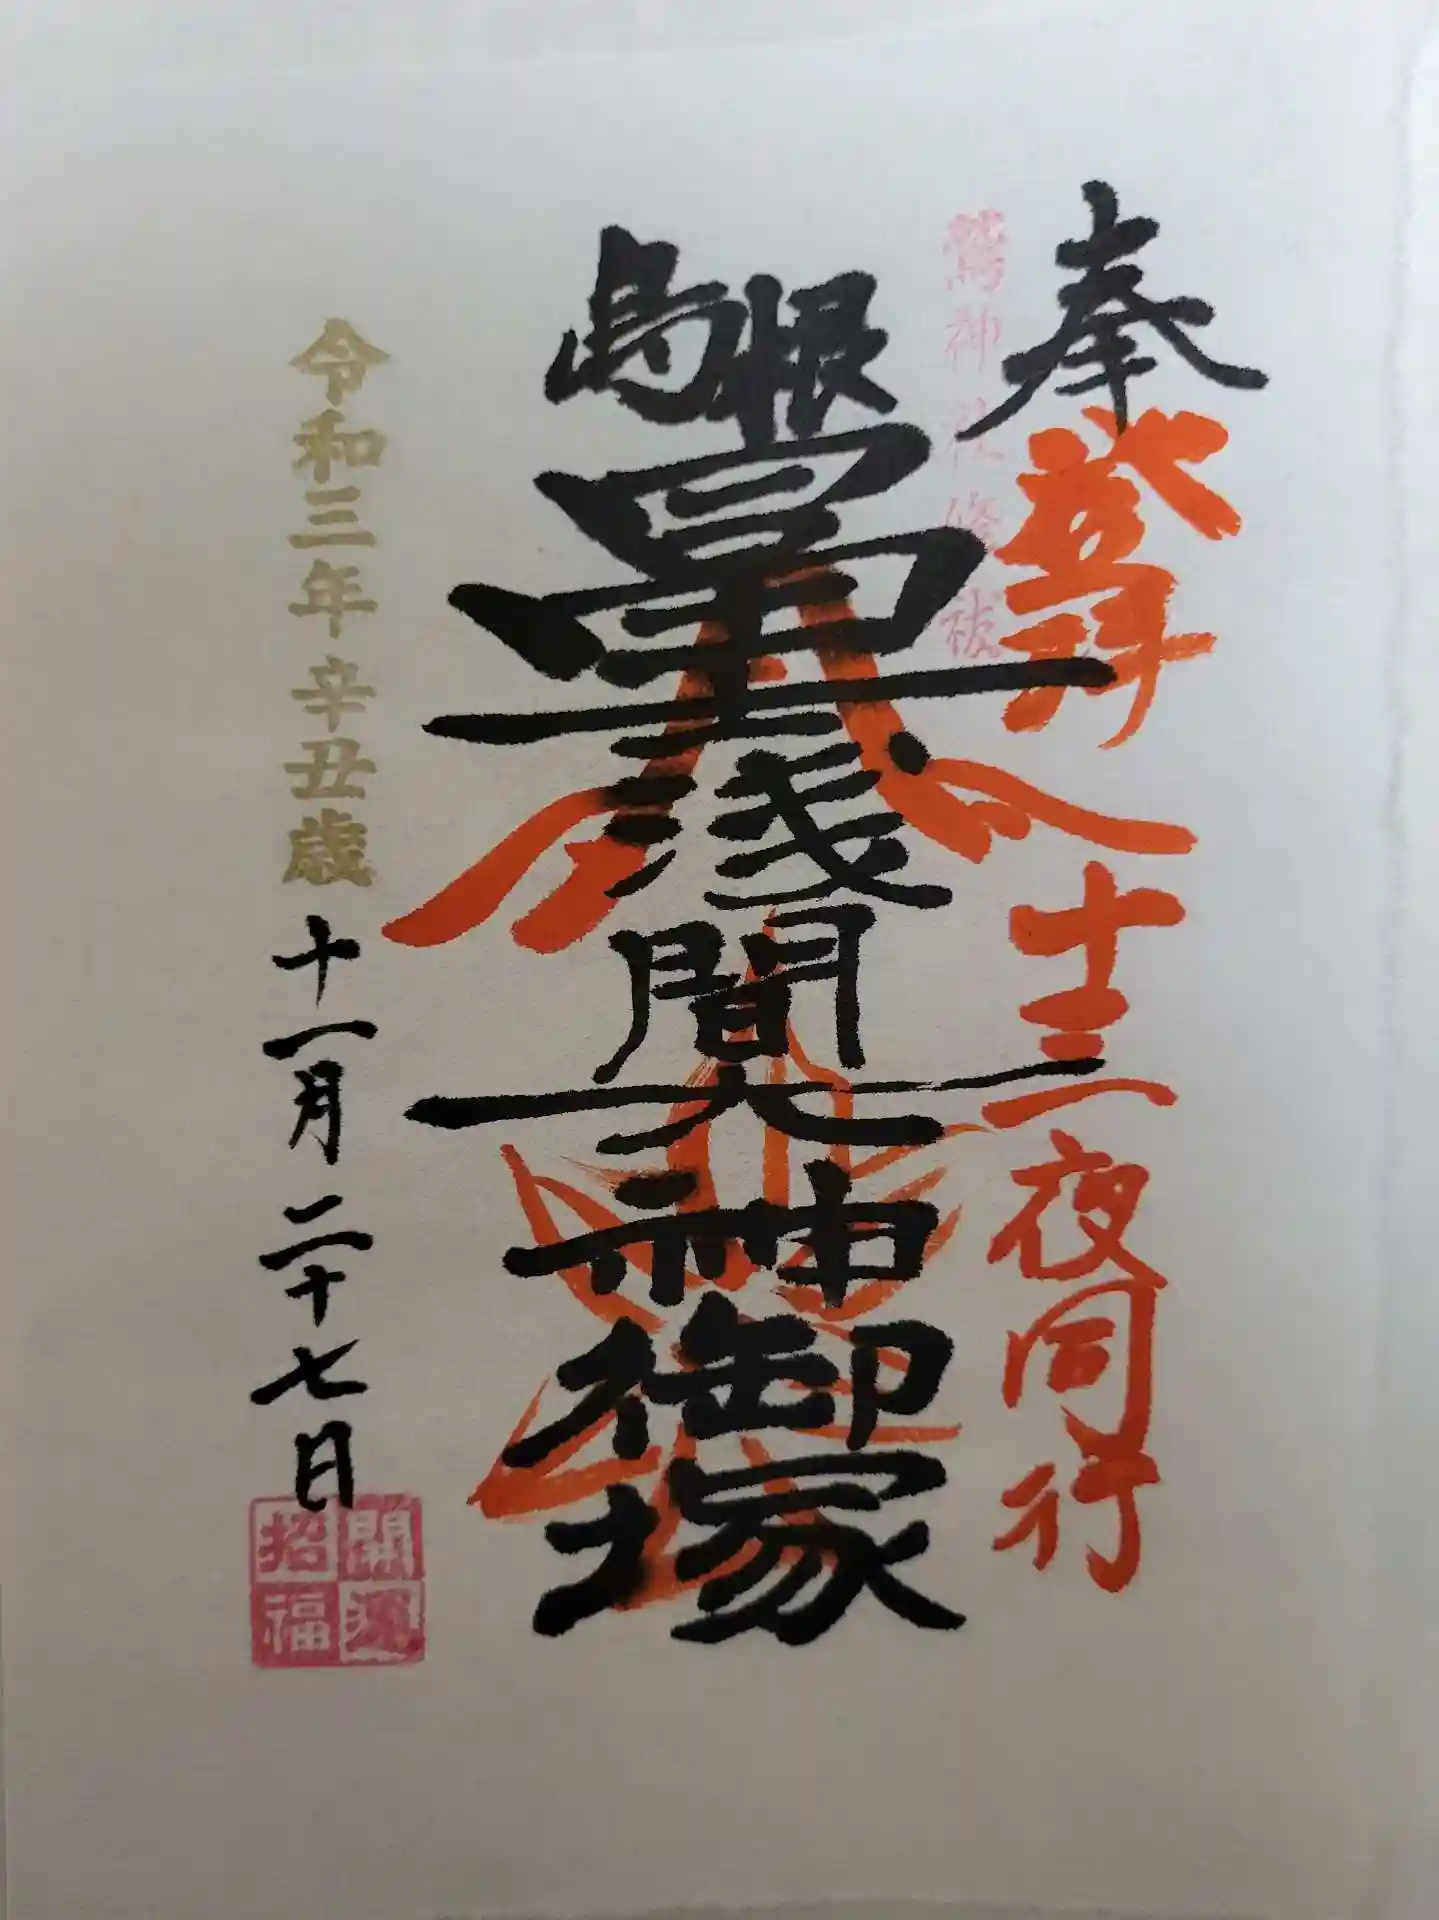 奉登拝 十三夜同行
鷲神社修祓
島根冨士浅間大神御塚
令和三年 辛丑歳 十一月二十七日
開運招福